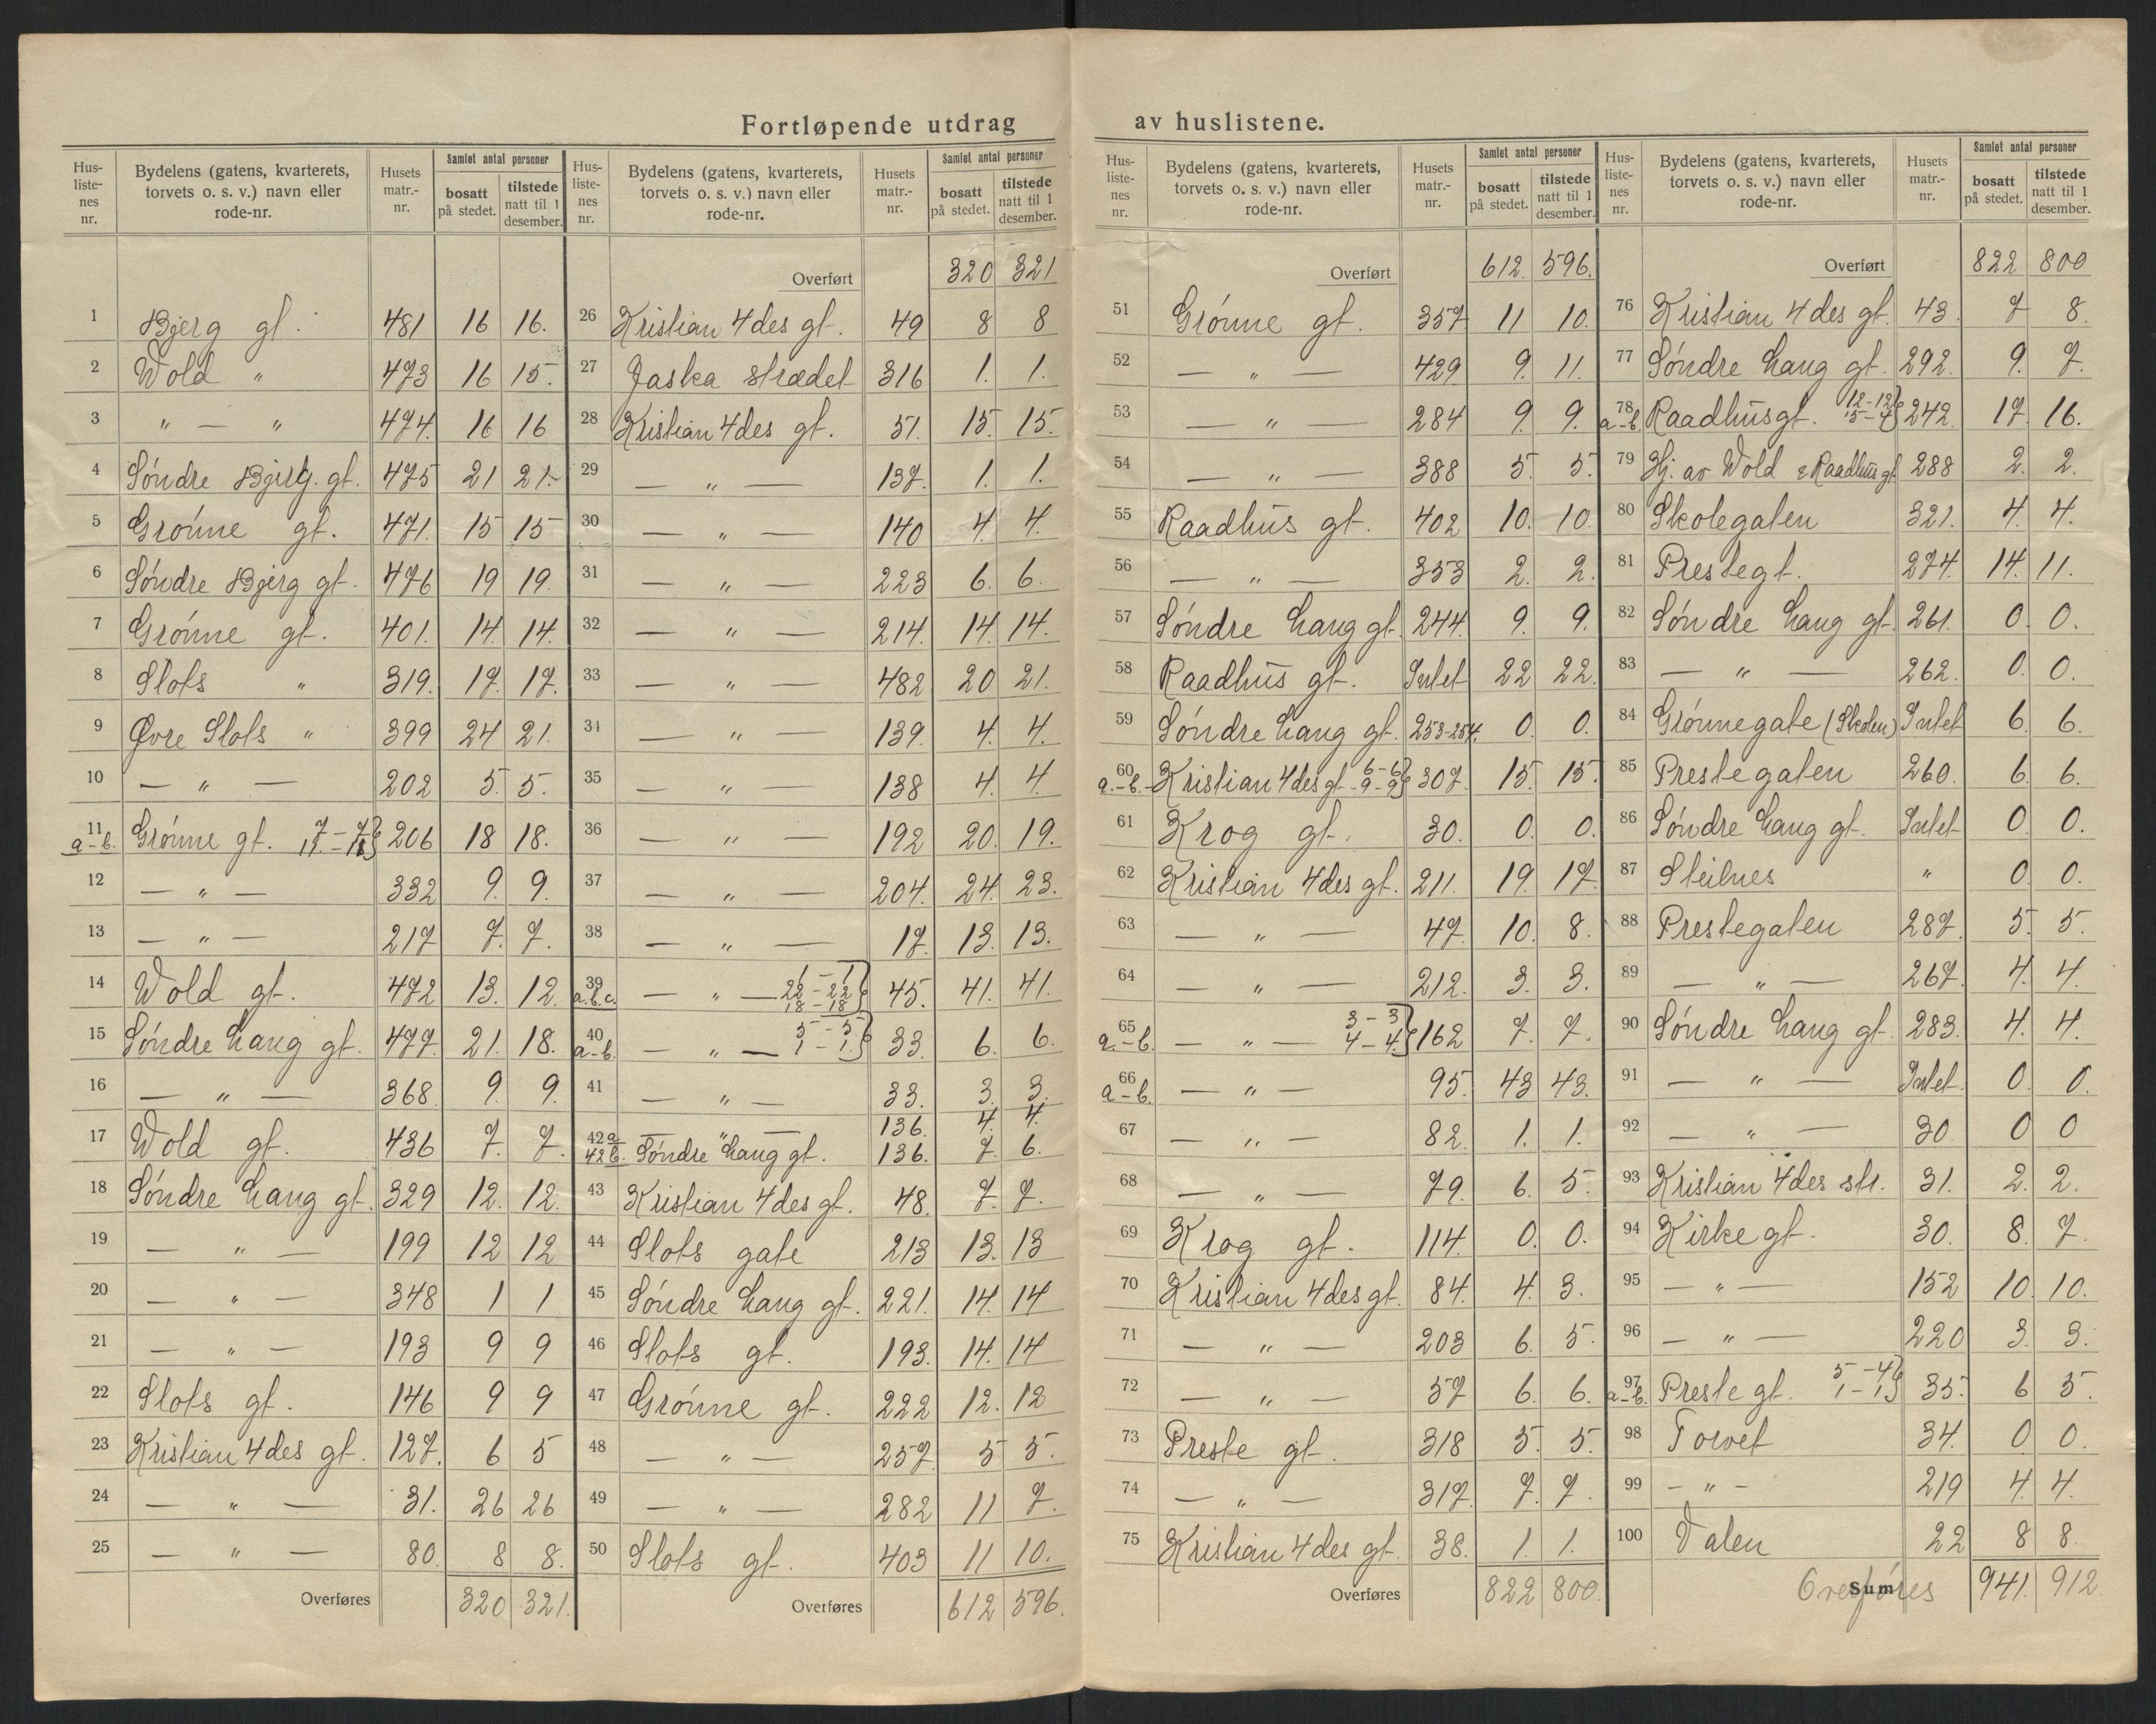 Fortløpende utdrag av huslistene.
Hus-listenes nr. | Bydelens (gatens, kvarterets, torvets o. s. v.) navn eller rode-nr. | Husets matr.-nr. | Samlet antal personer | bosatt på stedet. | tilstede natt til 1 desember.
1 Bjerg gt. 481 16 16.
2 Wold " 473 16 15.
3 " — " 474. 16 16
4 Søndre Bjerg. gt. 475 21 21.
5 Grønne gt. 471. 15 15
6 Søndre Bjerg gt. 476 19 19.
7 Grønne gt. 401. 14. 14.
8 Slots " 319. 17. 17.
9 Øvre Slots " 399 24 21.
10 — " — 202 5. 5.
11 a-b. Grønne gt. 7-7 11-11} 206 18 18.
12 — " — 332 9. 9.
13 — " — 217 7. 7.
14 Wold gt. 472 13. 12.
15 Søndre Haug gt. 477. 21. 18.
16 — " — 368 9. 9.
17 Wold gt. 436 7. 7.
18 Søndre Haug gt. 329 12. 12.
19 — " — 199 12 12
20 — " — 348 1 1
21 — " — 193 9 9
22 Slots gt. 146 9 9
23 Kristian 4des gt. 127. 6 5
24 — " — 31. 26 26
25 — " — 80. 8 8.
Overføres 320 321.
Hus-listenes nr. | Bydelens (gatens, kvarterets, torvets o. s. v.) navn eller rode-nr. | Husets matr.-nr. | Samlet antal personer | bosatt på stedet. | tilstede natt til 1 desember.
Overført 320 321
26 Kristian 4des gt. 49 8 8
27 Jaska strædet 316 1. 1.
28 Kristian 4des gt. 51. 15. 15.
29 — " — 137. 1. 1.
30 — " — 140 4. 4.
31 — " — 223 6. 6.
32 — " — 214. 14. 14.
33 — " — 482 20 21.
34 — " — 139. 4. 4.
35 — " — 138 4. 4.
36 — " — 192 20. 19.
37 — " — 204. 24. 23.
38 — " — 17. 13. 13.
39 a.b.c. — " — 1-1 22-22 18-18} 45. 41. 41.
40 a-b. — " — 5-5 1-1.} 33. 6. 6.
41 — " — 33. 3. 3.
42a — " — 136. 4. 4.
42b. Søndre Haug gt. 136. 7. 6.
43 Kristian 4des gt. 48. 7. 7.
44 Slots gate 213 13. 13
45 Søndre Haug gt. 221. 14. 14
46 Slots gt. 193. 14. 14
47 Grønne gt. 222 12. 12
48 — " — 257. 5 5.
49 — " — 282 11 7.
50 Slots gt. 403 11 10.
Overføres 612 596.
Hus-listenes nr. | Bydelens (gatens, kvarterets, torvets o. s. v.) navn eller rode-nr. | Husets matr.-nr. | Samlet antal personer | bosatt på stedet. | tilstede natt til 1 desember.
Overført 612. 596.
51 Grønne gt. 357 11 10.
52 — " — 429 9. 11.
53 — " — 284 9. 9.
54 — " — 388 5. 5.
55 Raadhus gt. 402 10. 10.
56 — " — 353 2. 2.
57 Søndre Haug gt. 244. 9. 9.
58 Raadhus gt. Intet 22 22.
59 Søndre Haug gt. 253-254. 0. 0.
60 a.-b. Kristian 4des gt. 6-6 9-9} 307. 15. 15.
61 Krog gt. 30. 0. 0.
62 Kristian 4des gt. 211. 19. 17.
63 — " — 47. 10. 8.
64 — " — 212. 3. 3.
65 a.-b. — " — 3-3 4-4.} 162 7. 7.
66 a-b. — " — 95. 43 43.
67 — " — 82. 1. 1.
68 — " — 79. 6. 5.
69 Krog gt. 114. 0. 0.
70 Kristian 4des gt. 84. 4. 3.
71 — " — 203 6. 5.
72 — " — 57 6. 6.
73 Preste gt. 318 5. 5.
74 — " — 317. 7. 7.
75 Kristian 4des gt. 38. 1. 1.
Overføres 822 800.
Hus-listenes nr. | Bydelens (gatens, kvarterets, torvets o. s. v.) navn eller rode-nr. | Husets matr.-nr. | Samlet antal personer | bosatt på stedet. | tilstede natt til 1 desember.
Overført 822 800
76 Kristian 4des gt. 43. 7 8.
77 Søndre Haug gt. 292. 9. 7.
78 a-b. Raadhusgt. 12-12 5-4} 242. 17. 16.
79 Hj. av Wold & Raadhus gt. 288 2. 2.
80 Skolegaten 321. 4. 4.
81 Prestegt. 274. 14. 11.
82 Søndre Haug gt. 261. 0. 0.
83 — " — 262. 0. 0.
84 Grønnegate (Skolen) Intet 6. 6.
85 Prestegaten 260. 6. 6.
86 Søndre Haug gt. Intet 0. 0.
87 Steilnes " 0. 0.
88 Prestegaten 287. 5. 5.
89 — " — 267. 4. 4.
90 Søndre Haug gt. 283. 4. 4.
91 — " — Intet. 0. 0.
92 — " — 30. 0 0
93 Kristian 4des str. 31. 2. 2.
94 Kirke gt. 30. 8. 7.
95 — " — 152 10. 10.
96 — " — 220 3. 3.
97 a-b. Preste gt. 5-4 1-1} 35. 6 5.
98 Torvet 34. 0 0.
99 — " — 219 4. 4.
100 Valen 22 8 8.
Sum Overføres 941. 912.